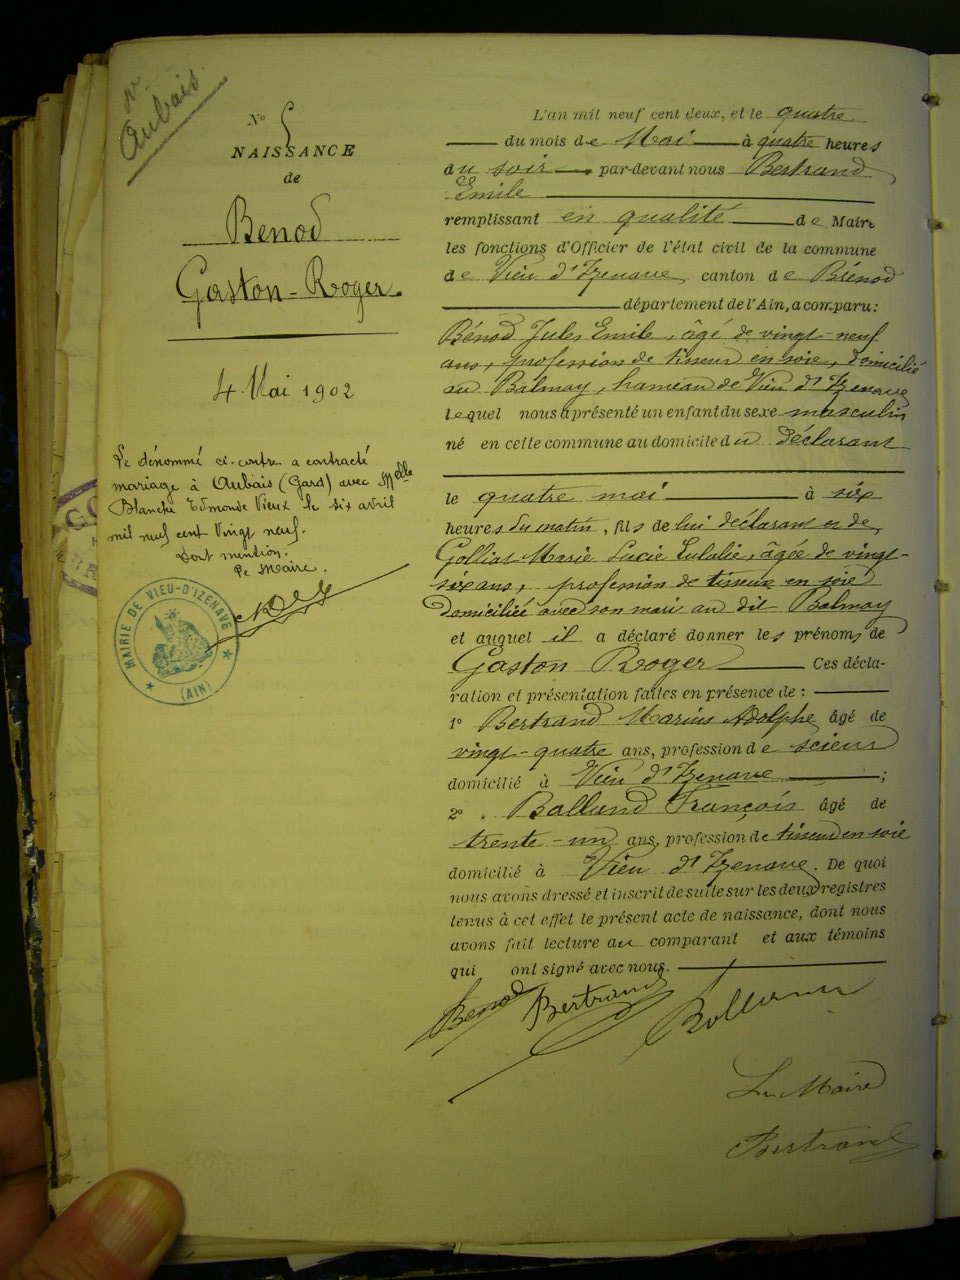 Vu
Aubais
N° 5
NAISSANCE
de
Benod
Gaston-Roger.
4 Mai 1902
Le dénommé ci-contre a contracté
mariage à Aubais (Gard) avec Melle
Blanche Edmonde Vieux le six avril
mil neuf cent Vingt neuf.
Dont mention.
Le Maire.
MAIRIE DE VIEU-D'IZENAVE
(AIN)
L'an mil neuf cent deux, et le quatre
du mois de Mai à quatre heures
du soir par-devant nous Bertrand
Emile
remplissant en qualité de Maire
les fonctions d'Officier de l'état civil de la commune
de Vieu d'Izenave canton de Brénod
département de l'Ain, a comparu :
Bénod Jules Emile, âgé de vingt-neuf
ans, profession de tisseur en soie, domicilié
au Balmay, hameau de Vieu d'Izenave
lequel nous a présenté un enfant du sexe masculin
né en cette commune au domicile du déclarant
le quatre mai à six
heures du matin, fils de lui déclarant et de
Golliat Marie Lucie Eulalie, âgée de vingt-
six ans, profession de tisseur en soie
domiciliée avec son mari au dit Balmay
et auquel il a déclaré donner les prénoms de
Gaston Roger Ces décla-
ration et présentation faites en présence de :
1° Bertrand Marius Adolphe âgé de
vingt-quatre ans, profession de scieur
domicilié à Vieu d'Izenave ;
2° Balland François âgé de
trente-un ans, profession de tisseur en soie
domicilié à Vieu d'Izenave. De quoi
nous avons dressé et inscrit de suite sur les deux registres
tenus à cet effet le présent acte de naissance, dont nous
avons fait lecture au comparant et aux témoins
qui ont signé avec nous.
Benod Bertrand Balland
Le Maire
Bertrand